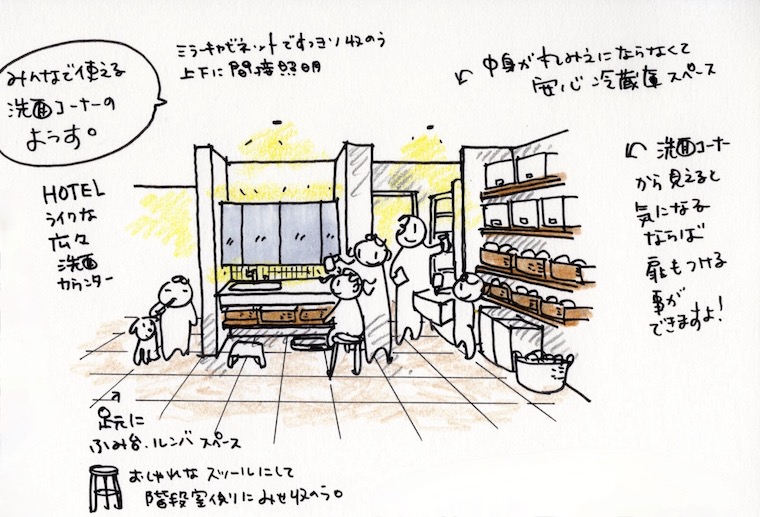 みんなで使える
洗面コーナーの
ようす。
ミラーキャビネットですっきり収のう
上下に間接照明
中身がまるみえにならなくて
安心 冷蔵庫スペース
洗面コーナー
から見えると
気になる
ならば
扉もつける
事が
できますよ!
HOTEL
ライクな
広々
洗面
カウンター
足元に
ふみ台・ルンバ スペース
おしゃれな スツールにして
階段室側にみせ収のう。